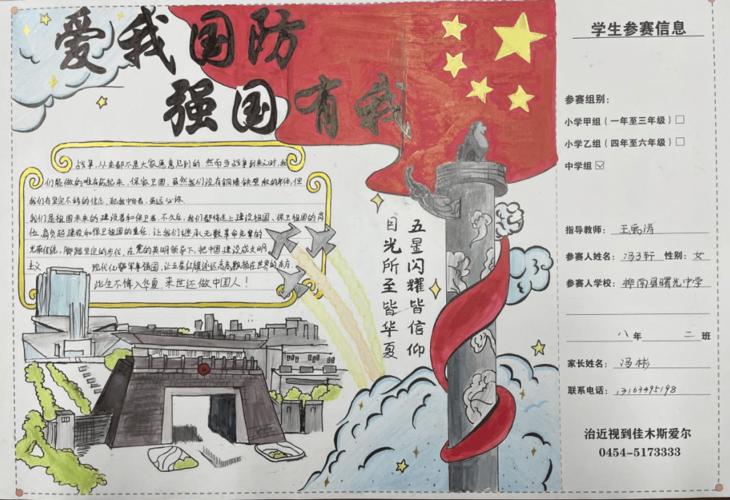 爱我国防
强国有我
战争,从来都不是大家愿意见到的,然而当战争到来之时,我
们能做的唯有战起来,保家卫国,虽然我们没有铜墙铁壁般的身体,但
我们有坚定不移的信念,
我们是祖国未来的建设者和保卫者,不久后,我们都将走上建设祖国、保卫祖国的岗
位,肩负起建设和保卫祖国的重任,让我们继承无数革命先辈的
光荣传统,脚踏坚定的步伐,在党的英明领导下,把中国建设成文明
主义 现代化 军事强国,让五星红旗永远高高飘扬在世界的东方,
此生不悔入华夏 来世还做中国人!
五星闪耀皆信仰
目光所至皆华夏
学生参赛信息
参赛组别:
小学甲组(一年至三年级)□
小学乙组(四年至六年级)□
中学组☑
指导教师:王
参赛人姓名:冯子轩 性别:女
参赛人学校:桦南县曙光中学
八年 二班
家长姓名:冯彬
联系电话:
治近视到佳木斯爱尔
0454-5173333